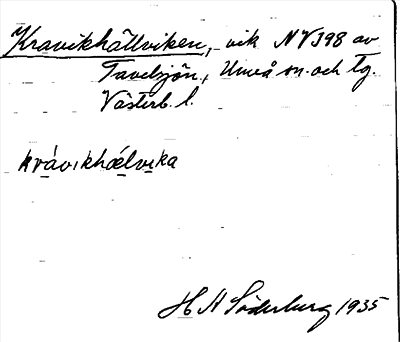 Kravikhällviken, vik NV398 av
Tavelsjön, Umeå sn. och tg.
Västerb. l.
kråvikhælvika
H A Söderburg 1935